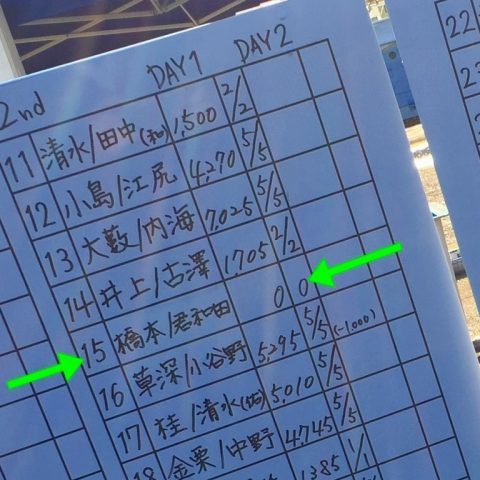 2nd DAY1 DAY2
11 清水/田中(和) 1,500 2/2
12 小島/江尻 4,270 5/5
13 大藪/内海 7,025 5/5
14 井上/古澤 1705 2/2
15 橋本/君和田 0 0
16 草深/小谷野 5,295 5/5 (-1,000)
17 桂/清水(佑) 5,010 5/5
18 金栗/中野 4745 5/5
1385 1/1
22